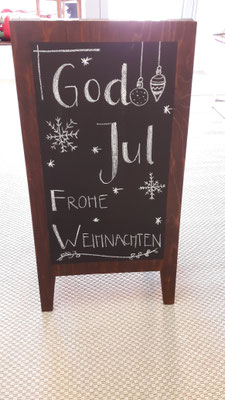 God
Jul
FROHE
WEIHNACHTEN